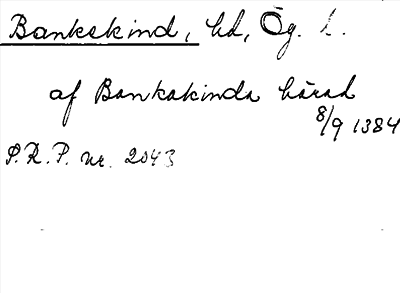 Bankekind, hd, Ög. l.
af Bankakinda härad
8/9 1384
S.R.P. nr. 2043